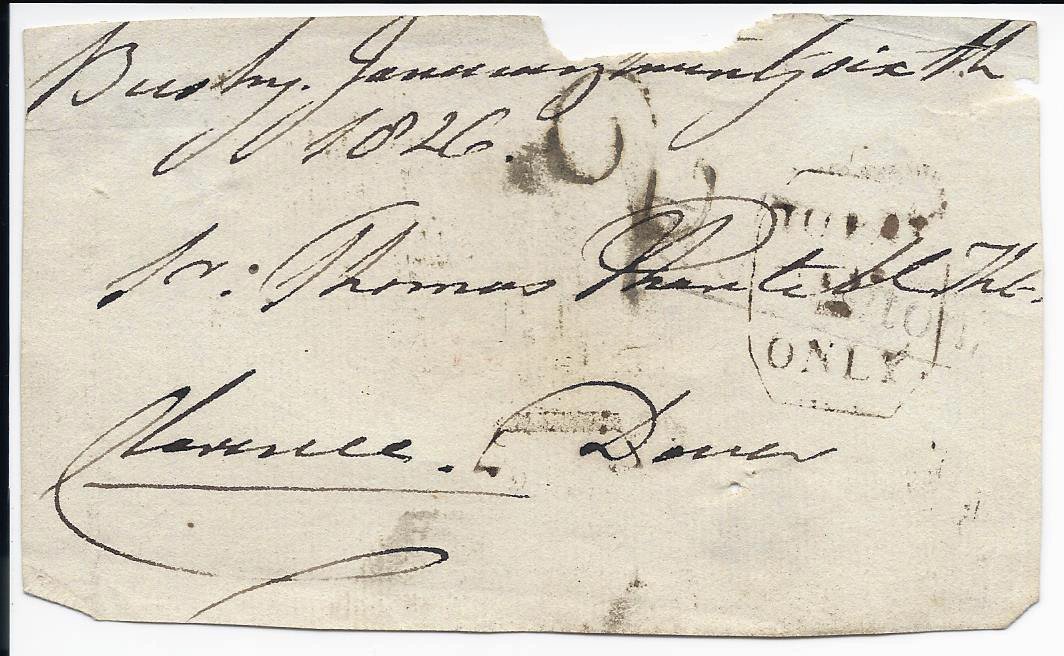 Bushy. January twenty sixth
1826.
Sr: Thomas
ONLY
Clarence. Dover